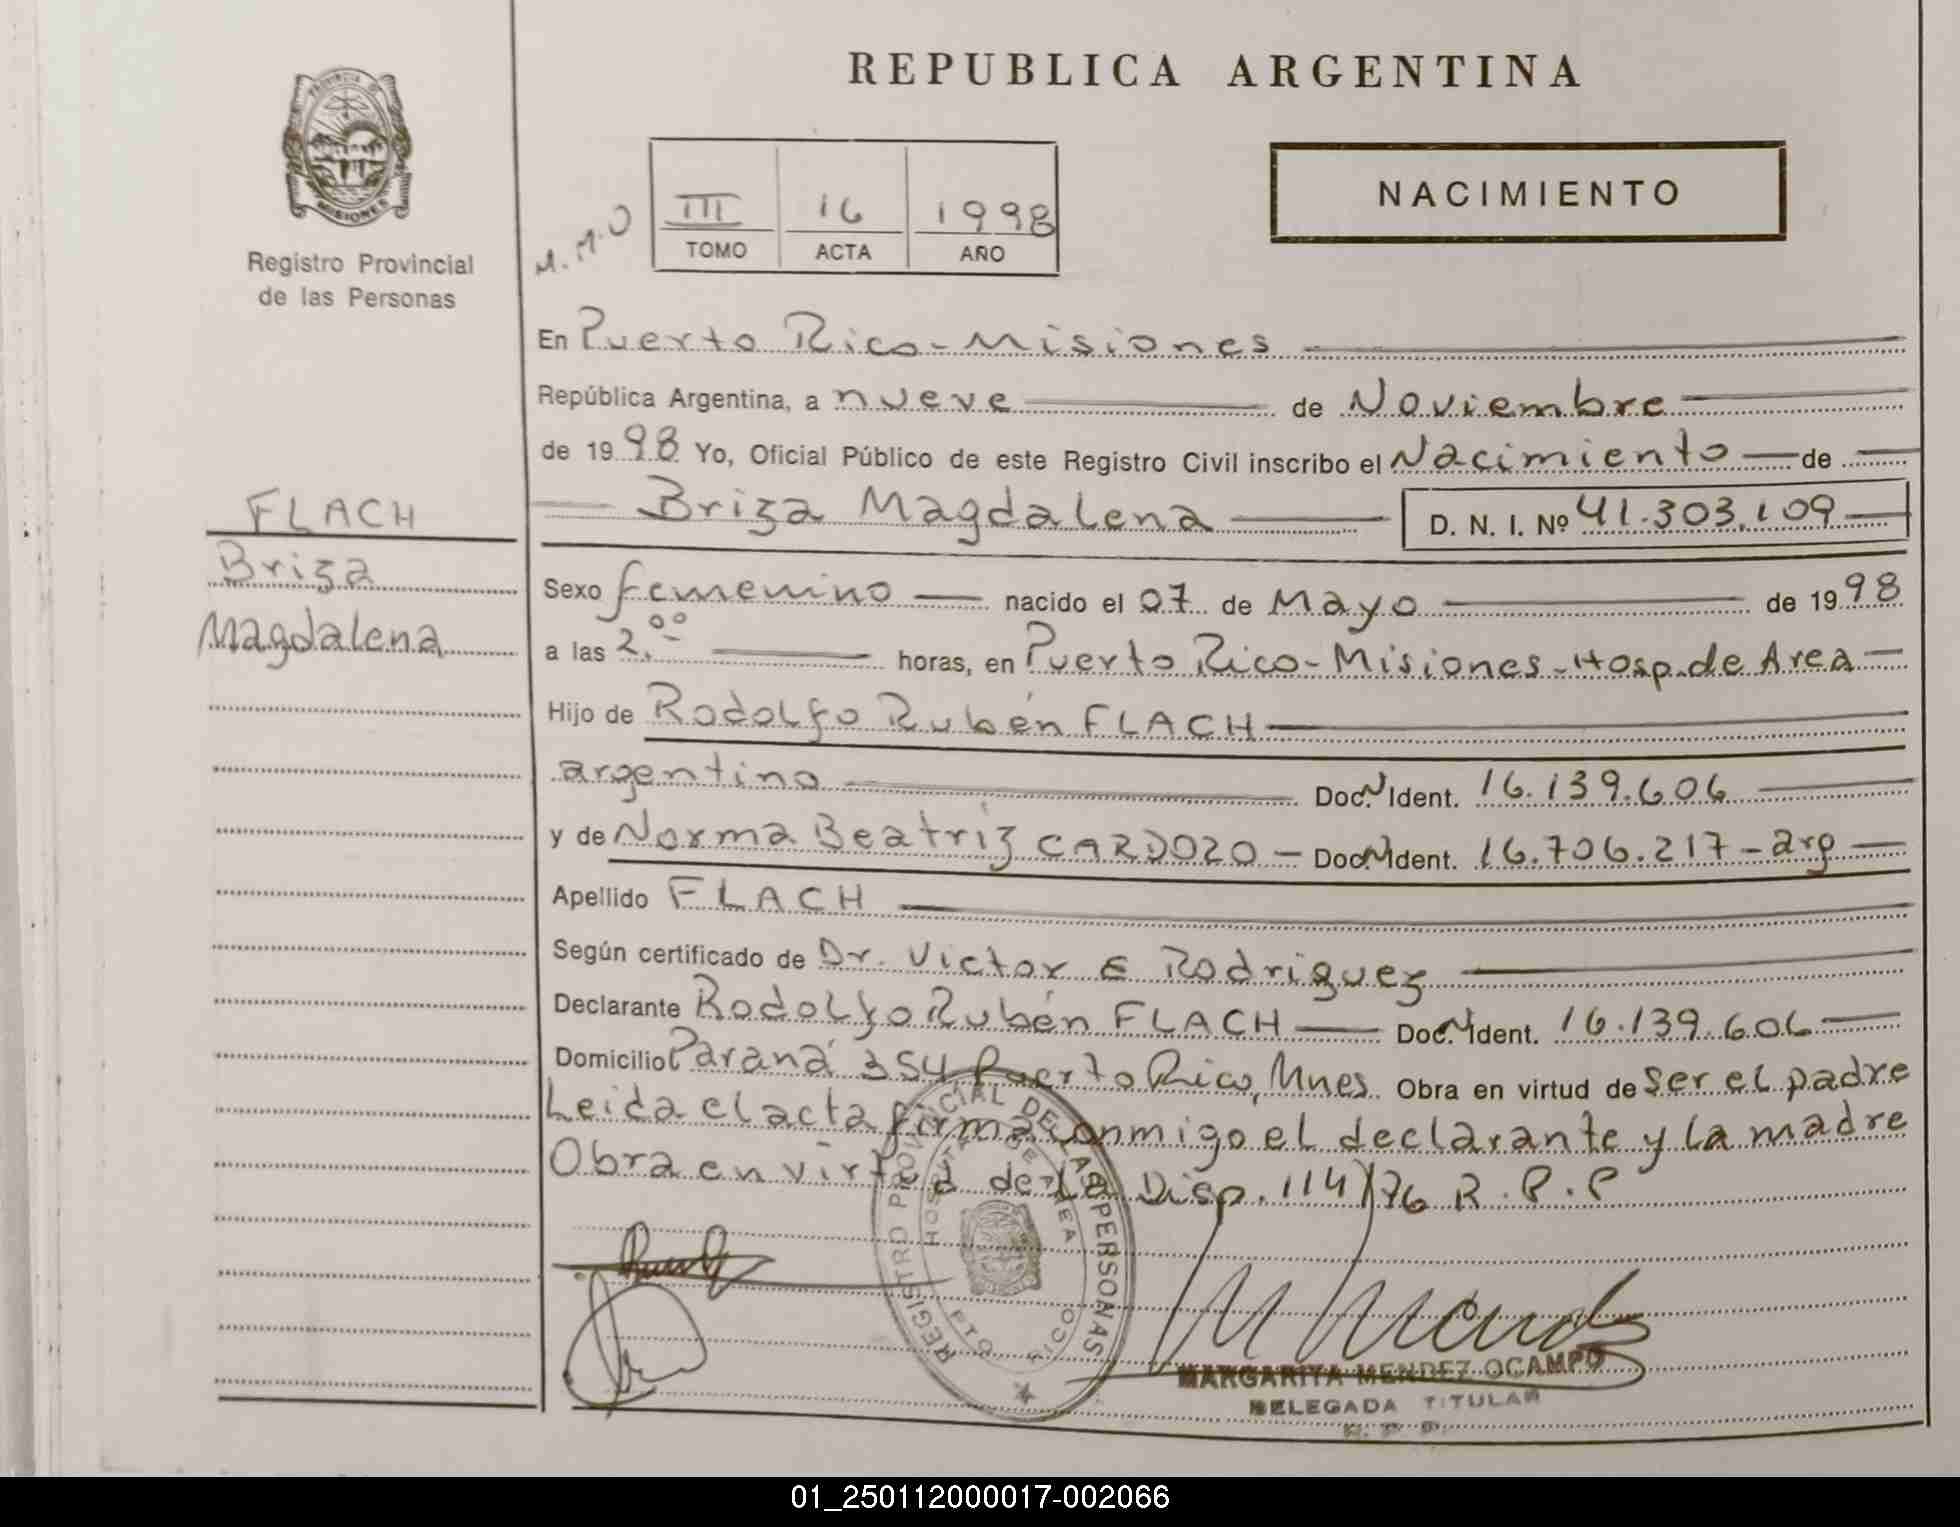 REPUBLICA ARGENTINA
PROVINCIA D
MISIONES
Registro Provincial
de las Personas
M.M.O
III 16 1998
TOMO ACTA AÑO
NACIMIENTO
En Puerto Rico - Misiones
República Argentina, a nueve de Noviembre
de 1998 Yo, Oficial Público de este Registro Civil inscribo el Nacimiento de
Briza Magdalena D. N. I. Nº 41.303.109
FLACH
Briza
Magdalena
Sexo femenino nacido el 07 de Mayo de 1998
a las 2.00 horas, en Puerto Rico - Misiones - Hosp. de Area
Hijo de Rodolfo Rubén FLACH
argentino Doc. N Ident. 16.139.606
y de Norma Beatriz CARDOZO - Doc. N Ident. 16.706.217 - arg
Apellido FLACH
Según certificado de Dr. Victor E Rodriguez
Declarante Rodolfo Rubén FLACH Doc. N Ident. 16.139.606
Domicilio Paraná 354 Puerto Rico, Mnes. Obra en virtud de ser el padre
Leida el acta firma conmigo el declarante y la madre
Obra en virtud de la Disp. 114/76 R.P.P
REGISTRO PROVINCIAL DE LAS PERSONAS
HOSPITAL DE AREA
PTO RICO
MARGARITA MENDEZ OCAMPO
DELEGADA TITULAR
R. P. P.
01_250112000017-002066